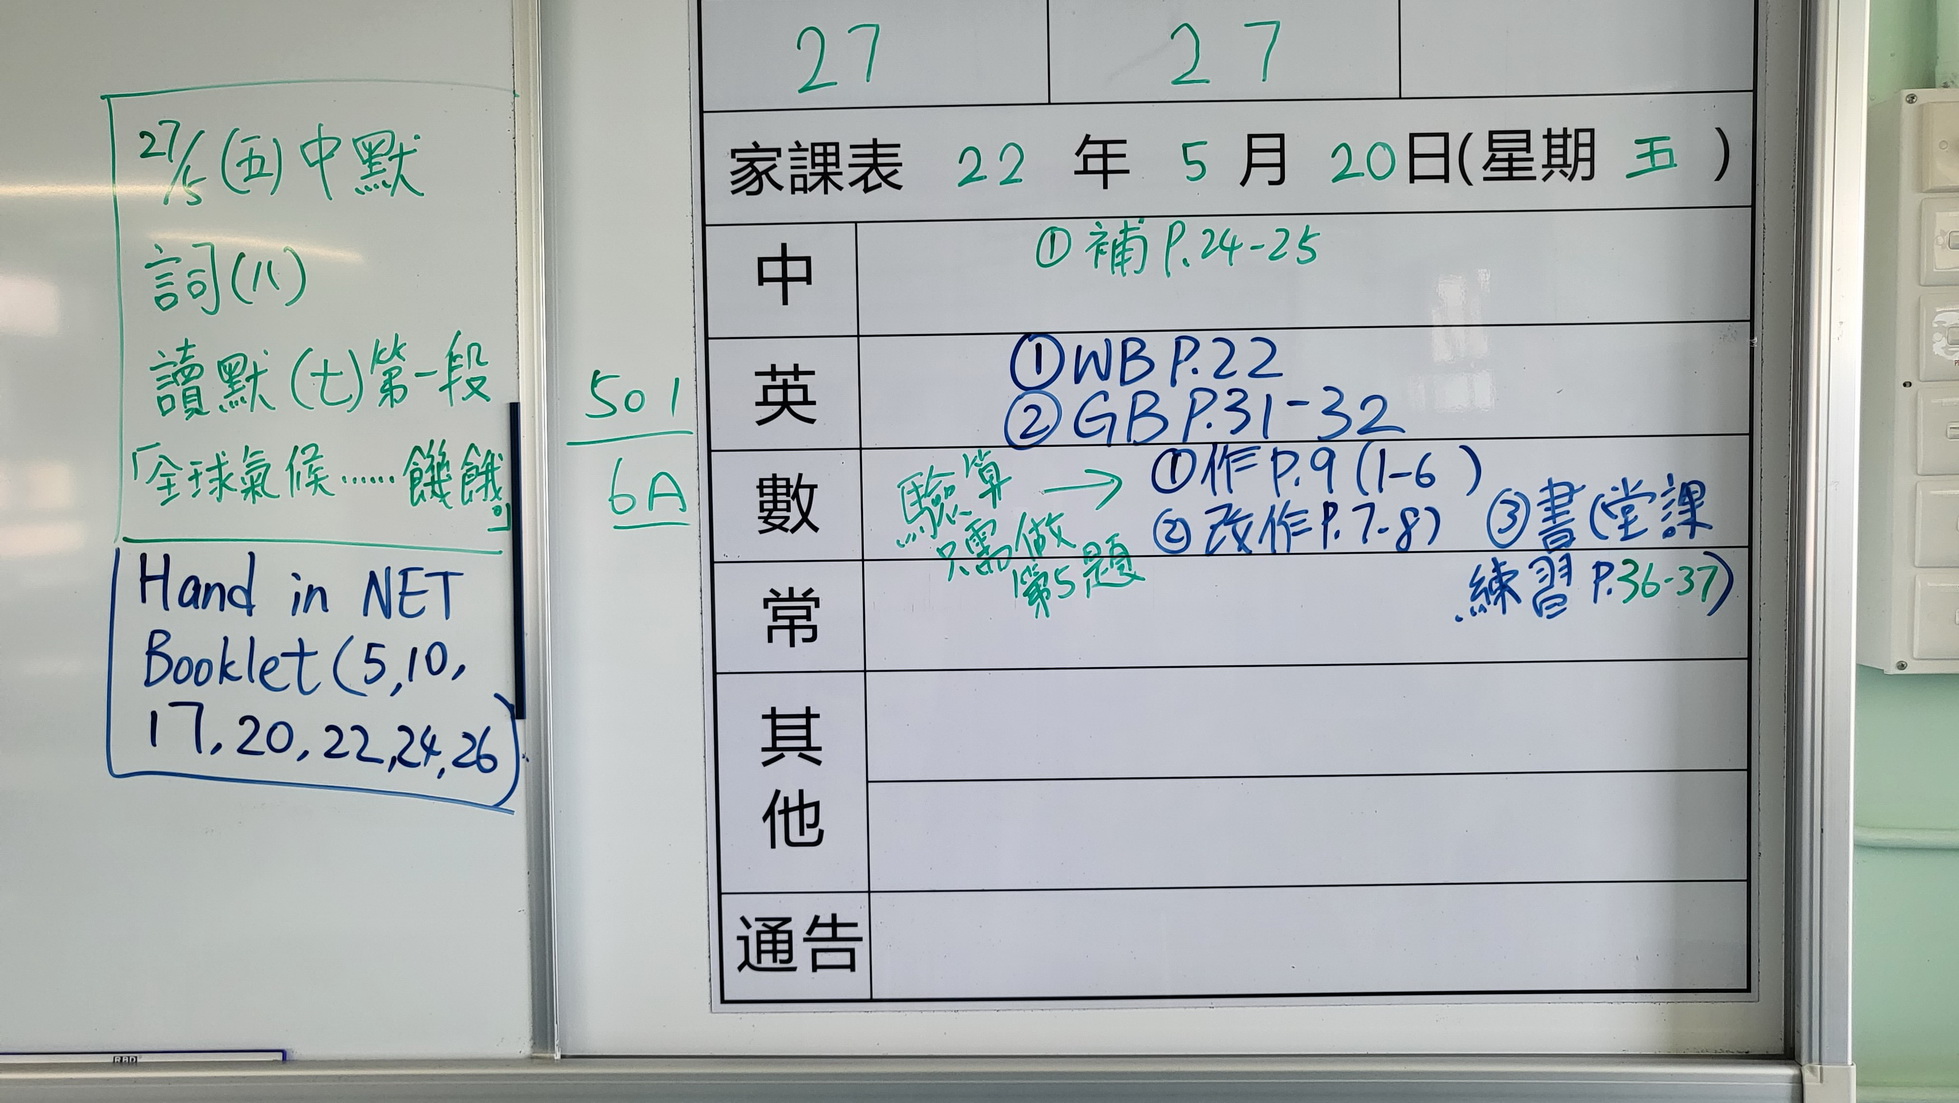 27/5 (五) 中默
詞(八)
讀默(七)第一段
「全球氣候……饑餓。」
Hand in NET
Booklet (5,10,
17, 20, 22, 24, 26)
501
6A
27 27
家課表 22 年 5 月 20 日(星期 五 )
中 ①補 P.24-25
英 ①WB P.22
②GB P.31-32
數 驗算 → ①作 P.9 (1-6)
只需做 ②改作 P.7-8) ③書(堂課
第5題 練習 P.36-37)
常
其他
通告